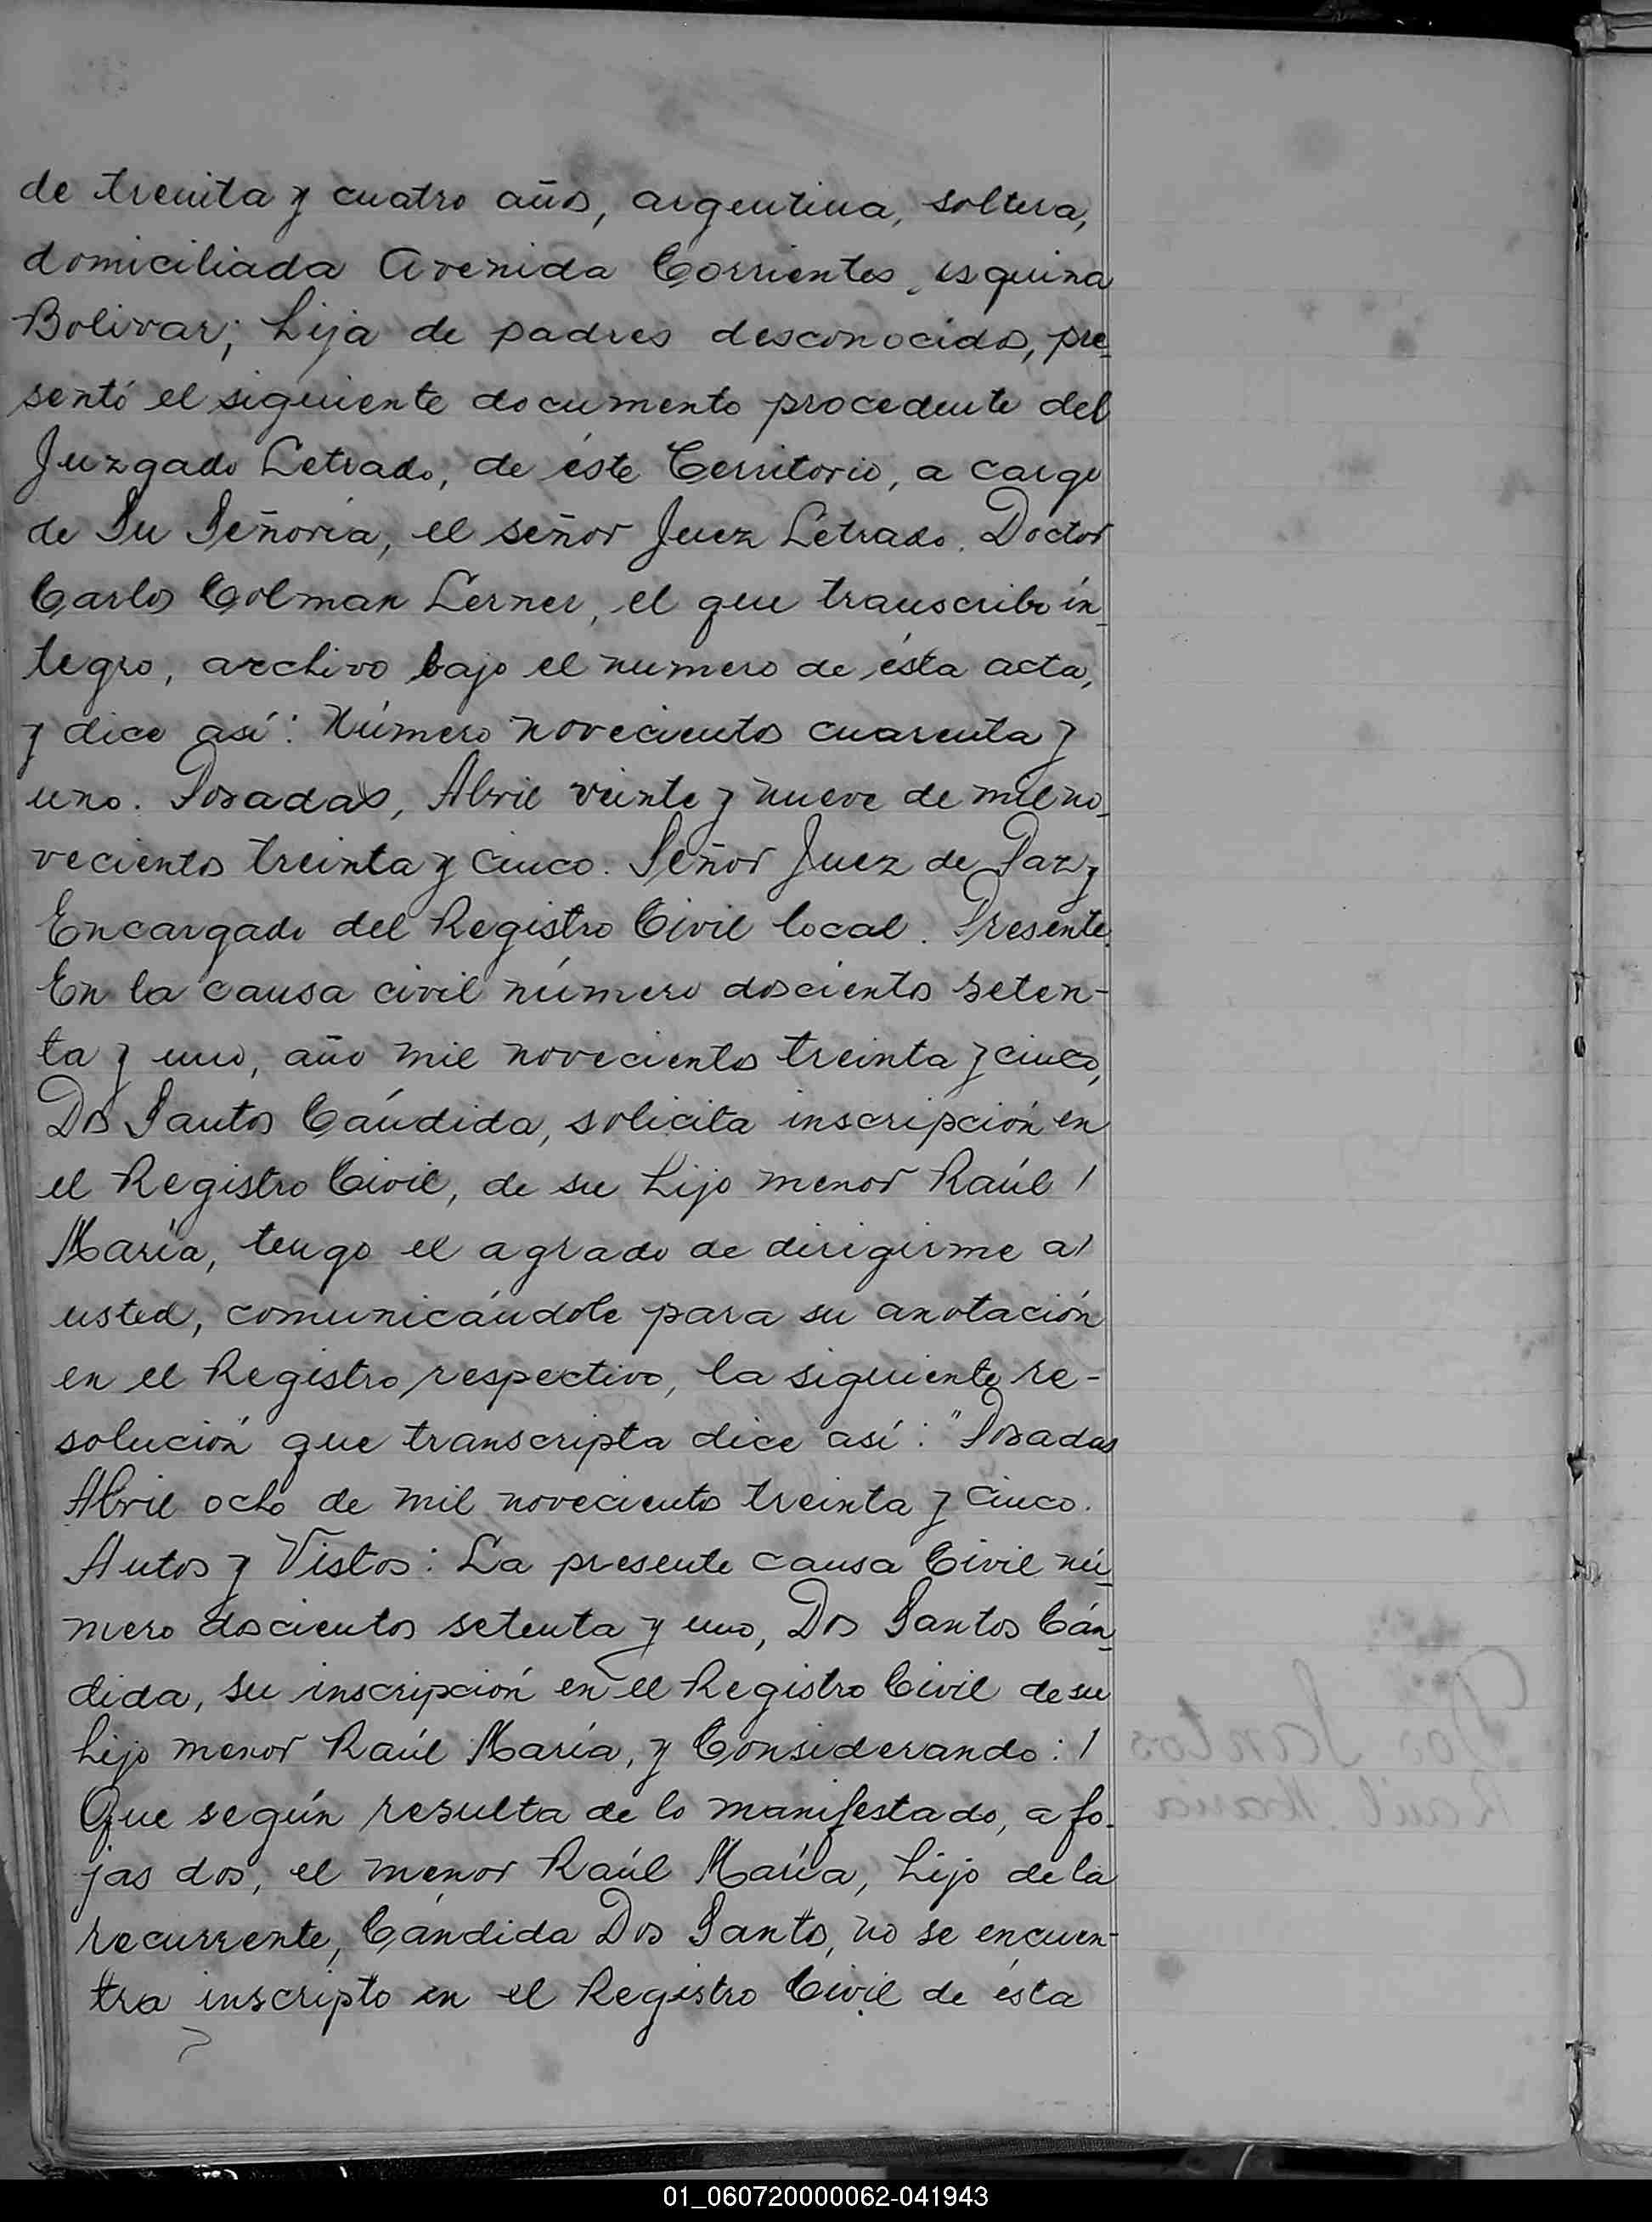 de treinta y cuatro años, argentina, soltera,
domiciliada Avenida Corrientes, esquina
Bolivar; hija de padres desconocidos, pre_
sentó el siguiente documento procedente del
Juzgado Letrado, de éste Territorio, a cargo
de Su Señoría, el señor Juez Letrado. Doctor
Carlos Colman Lerner, el que transcribo ín_
tegro, archivo bajo el numero de ésta acta,
y dice así: Número novecientos cuarenta y
uno. Posadas, Abril veinte y nueve de mil no_
vecientos treinta y cinco. Señor Juez de Paz y
Encargado del Registro Civil local. Presente.
En la causa civil número doscientos seten-
ta y uno, año mil novecientos treinta y cinco,
Dos Santos Cándida, solicita inscripción en
el Registro Civil, de su hijo menor Raúl /
María, tengo el agrado de dirigirme a/
usted, comunicándole para su anotación
en el Registro respectivo, la siguiente re-
solución que transcripta dice así: "Posadas
Abril ocho de mil novecientos treinta y cinco.
Autos y Vistos: La presente causa Civil nú_
mero doscientos setenta y uno, Dos Santos Cán_
dida, su inscripción en el Registro Civil de su
hijo menor Raúl María, y Considerando: /
Que según resulta de lo manifestado, a fo_
jas dos, el menor Raúl María, hijo de la
recurrente, Cándida Dos Santos, no se encuen-
tra inscripto en el Registro Civil de ésta
Dos Santos
Raúl María
01_060720000062-041943